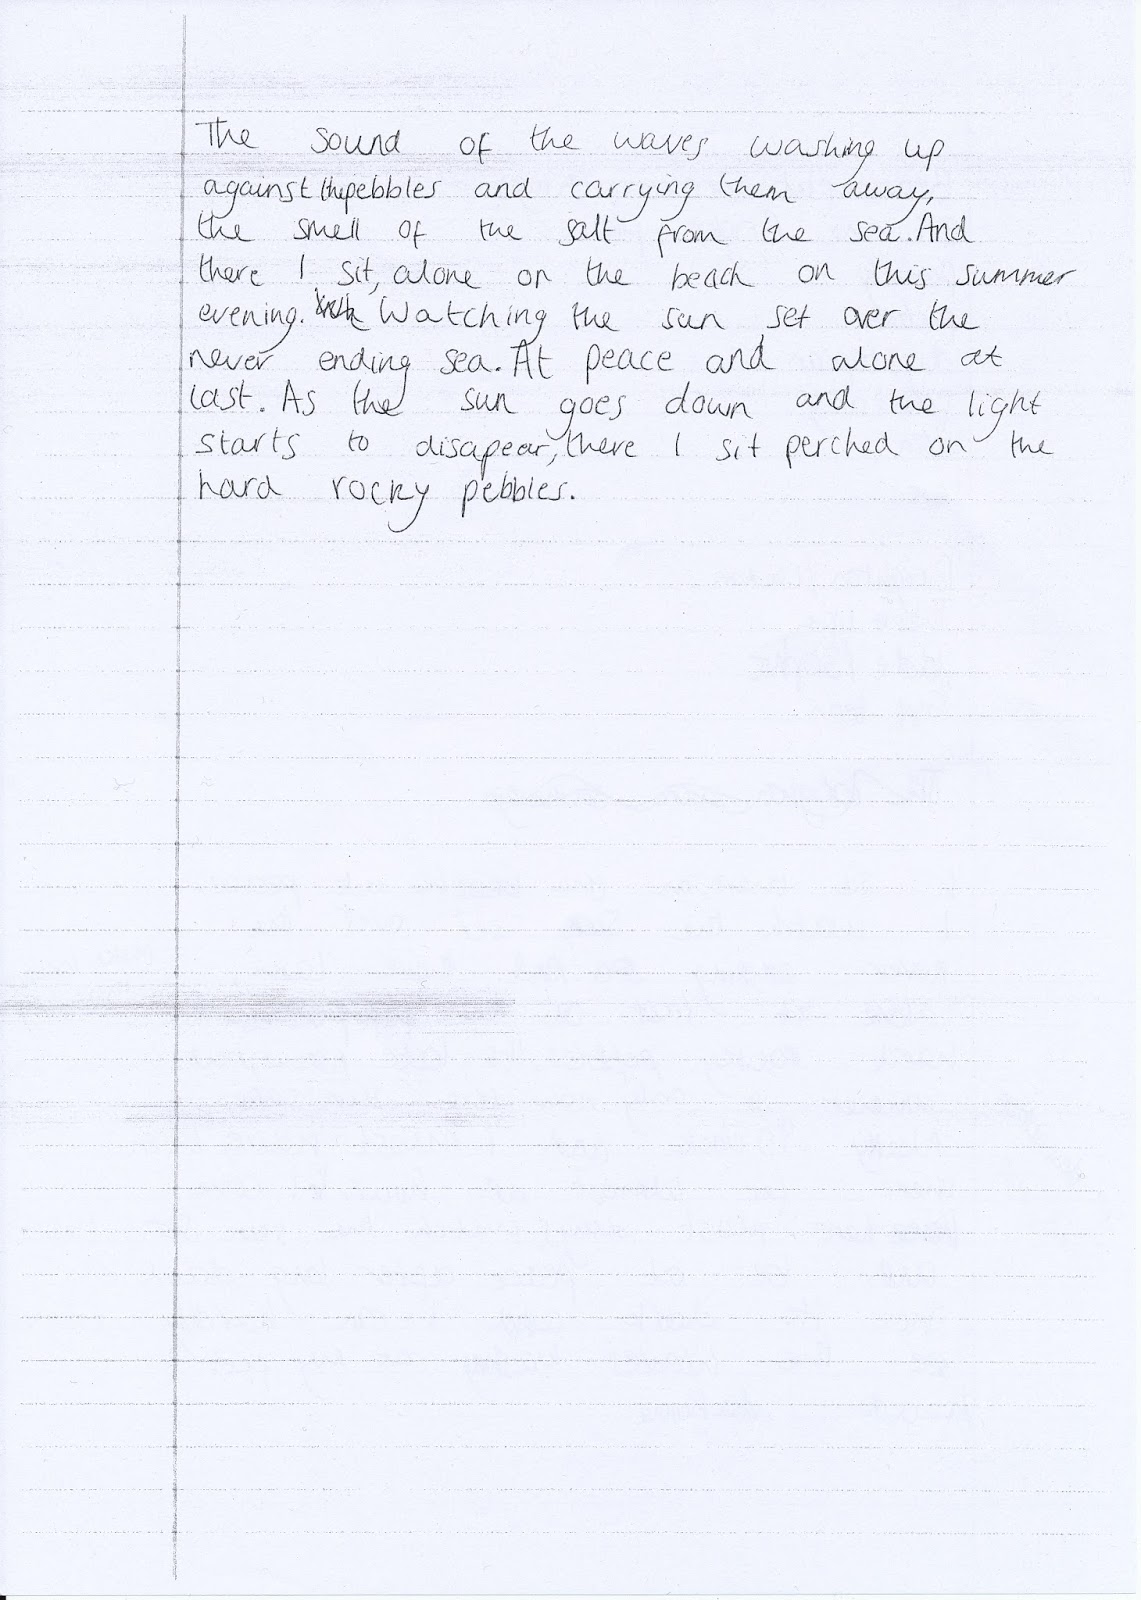 The sound of the waves washing up
against the pebbles and carrying them away,
the smell of the salt from the sea. And
there I sit, alone on the beach on this summer
evening. Watching the sun set over the
never ending sea. At peace and alone at
last. As the sun goes down and the light
starts to disapear, there I sit perched on the
hard rocky pebbles.